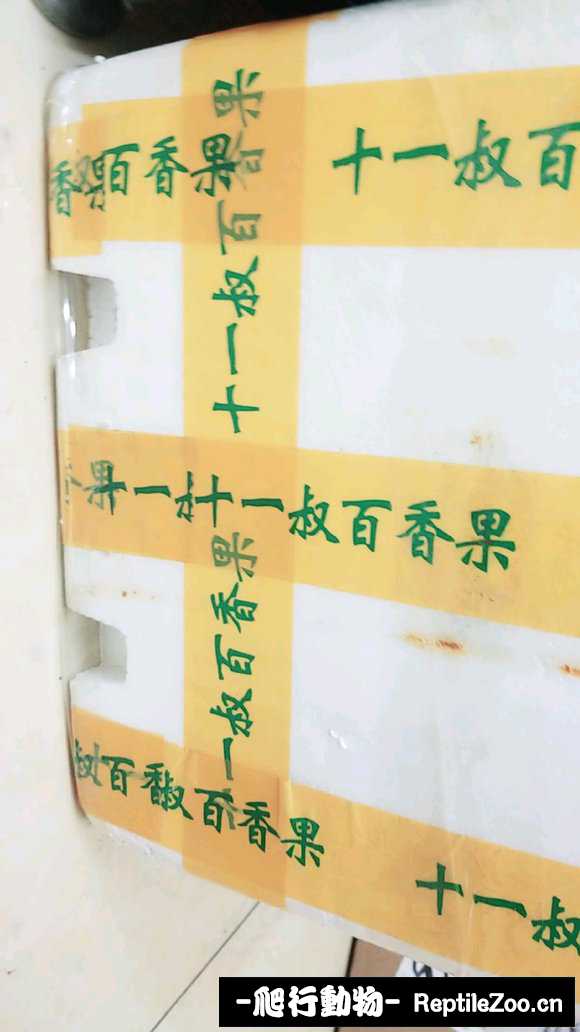 香果百香果
十一叔百
十一叔百香果
果十一叔十一叔百香果
一叔百香果
叔百香叔百香果
十一叔
-爬行動物- ReptileZoo.cn